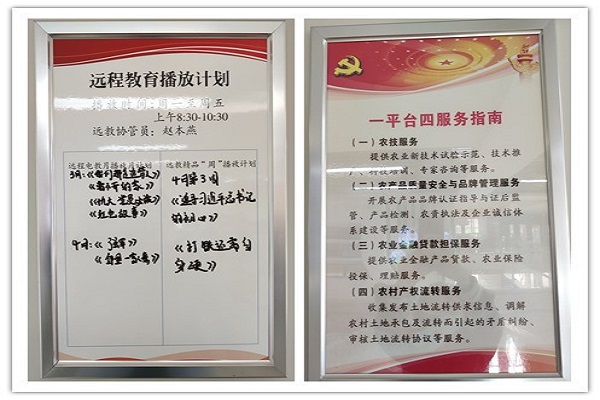 远程教育播放计划
播放时间:周一至周五
上午8:30-10:30
远教协管员:赵本燕
远程电教月播放月计划
远教精品“周”播放计划
3月:
4月第3周
《追寻习近平总书记
的初心》
《红色故事》
4月:
《打铁还需自
身硬》
一平台四服务指南
(一)农技服务
提供农业新技术试验示范、技术推
广、科技培训、专家咨询等服务。
(二)农产品质量安全与品牌管理服务
开展农产品品牌认证指导与证后监
管、产品检测、农资执法及企业诚信体
系建设等服务。
(三)农业金融贷款担保服务
提供农业金融产品贷款、农业保险
投保、理赔服务。
(四)农村产权流转服务
收集发布土地流转供求信息、调解
农村土地承包及流转而引起的矛盾纠纷、
审核土地流转协议等服务。